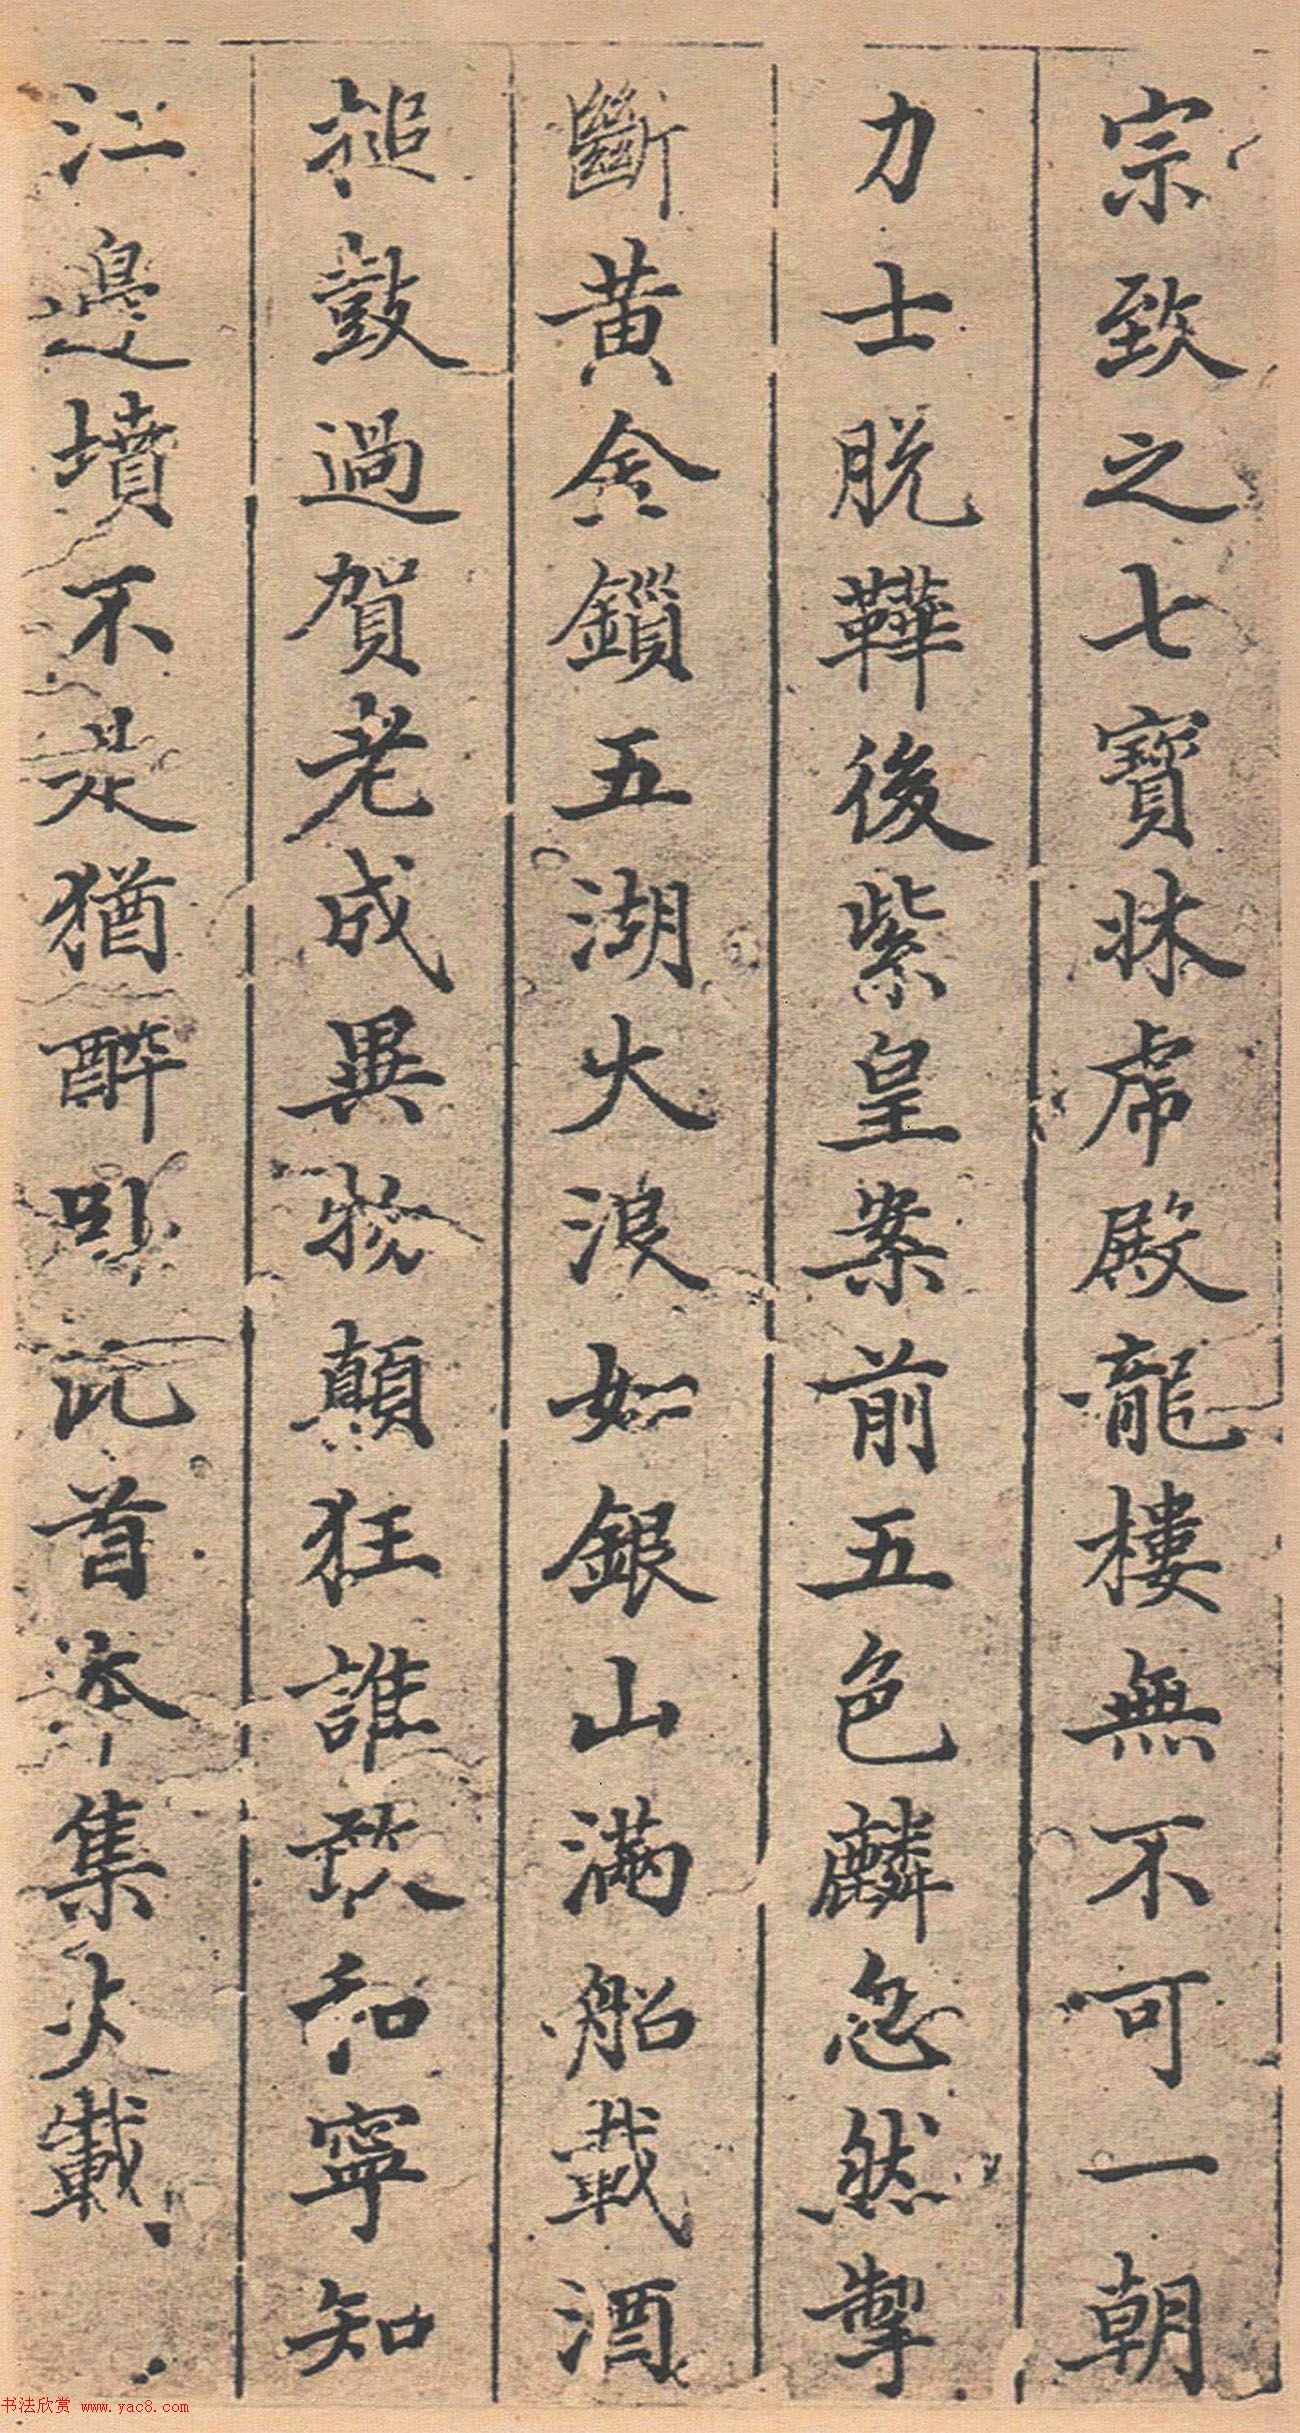 宗致之七寶牀虎殿龍樓無不可一朝
力士脫鞾後紫皇案前五色麟忽然掣
斷黃金鎖五湖大浪如銀山滿船載酒
搥鼓過賀老成異物顛狂誰敢和寧知
江邊墳不是猶醉卧此首本集大載
书法欣赏 www.yac8.com